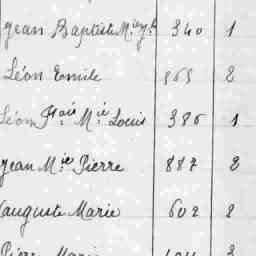 Jean Baptiste M.ie J.h 340 1
Léon Emile 2
Léon F.ois M.ie Louis 386 1
Jean M.ie Pierre 887 2
Auguste Marie 602 2
Pierre Marie